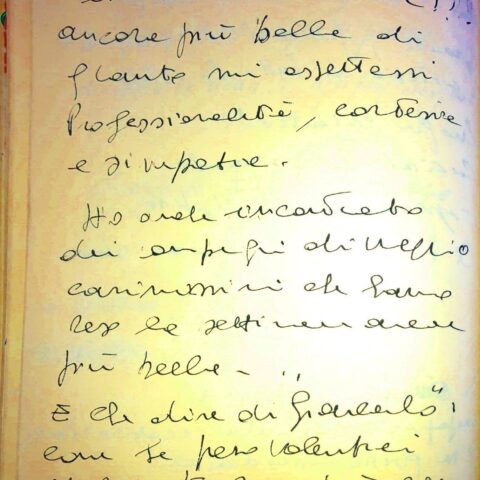 (!!!
ancora più bella di
quanto mi aspettassi
Professionalità, cortesia
e simpatia.
Ho anche incontrato
dei compagni di viaggio
carinissimi che hanno
reso la settimana ancora
più bella.
E che dire di "Giancarlo"!
con te però volentieri